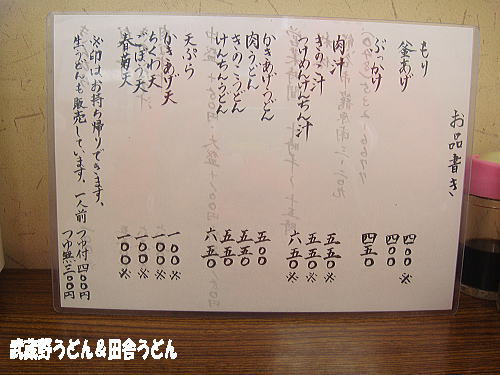 お品書き
もり 四〇〇※
釜あげ 四〇〇
ぶっかけ 四五〇
肉汁 五五〇※
きのこ汁 五五〇※
つけめんけんちん汁 六五〇※
かきあげうどん 五〇〇
肉うどん 五五〇
きのこうどん 五五〇
けんちんうどん 六五〇
天ぷら
かきあげ天 一〇〇※
ちくわ天 一〇〇※
ごぼう天 一〇〇※
春菊天 一〇〇※
※印はお持ち帰りできます。
生うどんも販売しています。一人前 つゆ付四〇〇円
つゆ無三〇〇円
武蔵野うどん&田舎うどん